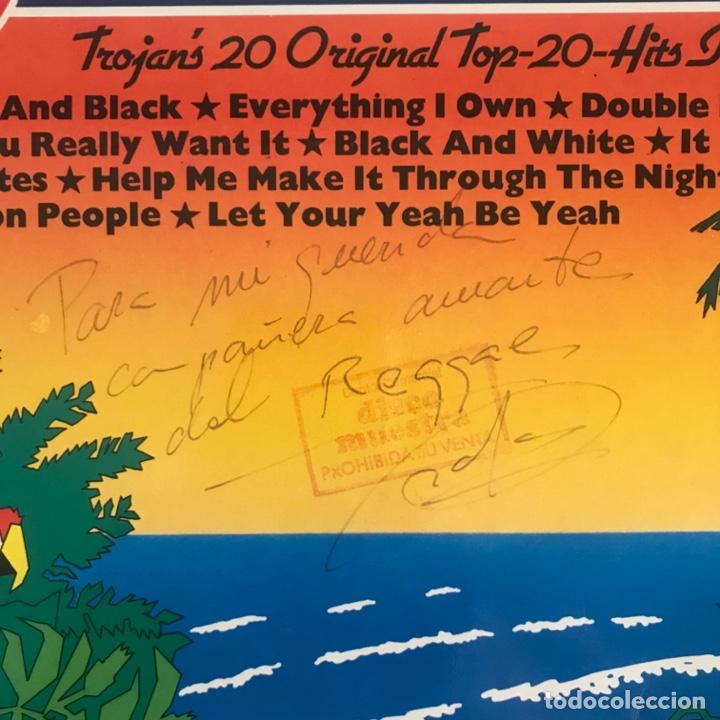 Trojan's 20 Original Top-20-Hits
And Black ★ Everything I Own ★ Double
u Really Want It ★ Black And White ★ It
tes ★ Help Me Make It Through The Night
on People ★ Let Your Yeah Be Yeah
Para mi querida
compañera amante
del Reggae
disco
muestra
PROHIBIDA SU VENTA
todocoleccion